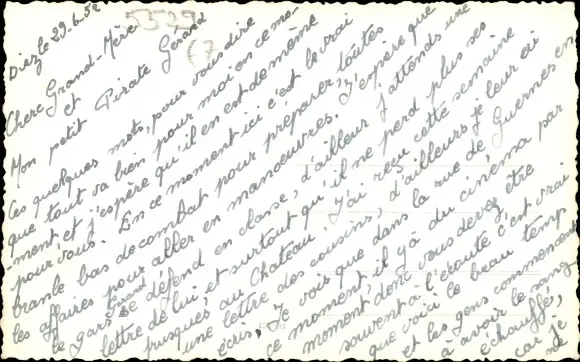 Diez le 29.6.52
5529
(7
Chère Grand-Mère
et
Mon petit Pirate Gérard
Ces quelques mots, pour vous dire
que tout va bien pour moi en ce mo-
ment et j'espère qu'il en est de même
pour vous. En ce moment ici c'est le vrai
branle bas de combat pour préparer, toutes
les affaires pour aller en manœuvres. J'espère que
le gars Grand se défend en classe, d'ailleur j'attends une
lettre de lui, et surtout qu'il ne perd plus ses
puques au Chateau. J'ai reçu cette semaine
une lettre des cousins, d'ailleurs je leur ai
écris, Je vois que dans la rue de Guernes en
ce moment, il y à du cinéma par
moment donc vous devez être
souvent à l'eroute c'est vrai
que voici le beau temp
et les gens commencent
à avoir le sang
échauffé,
car je